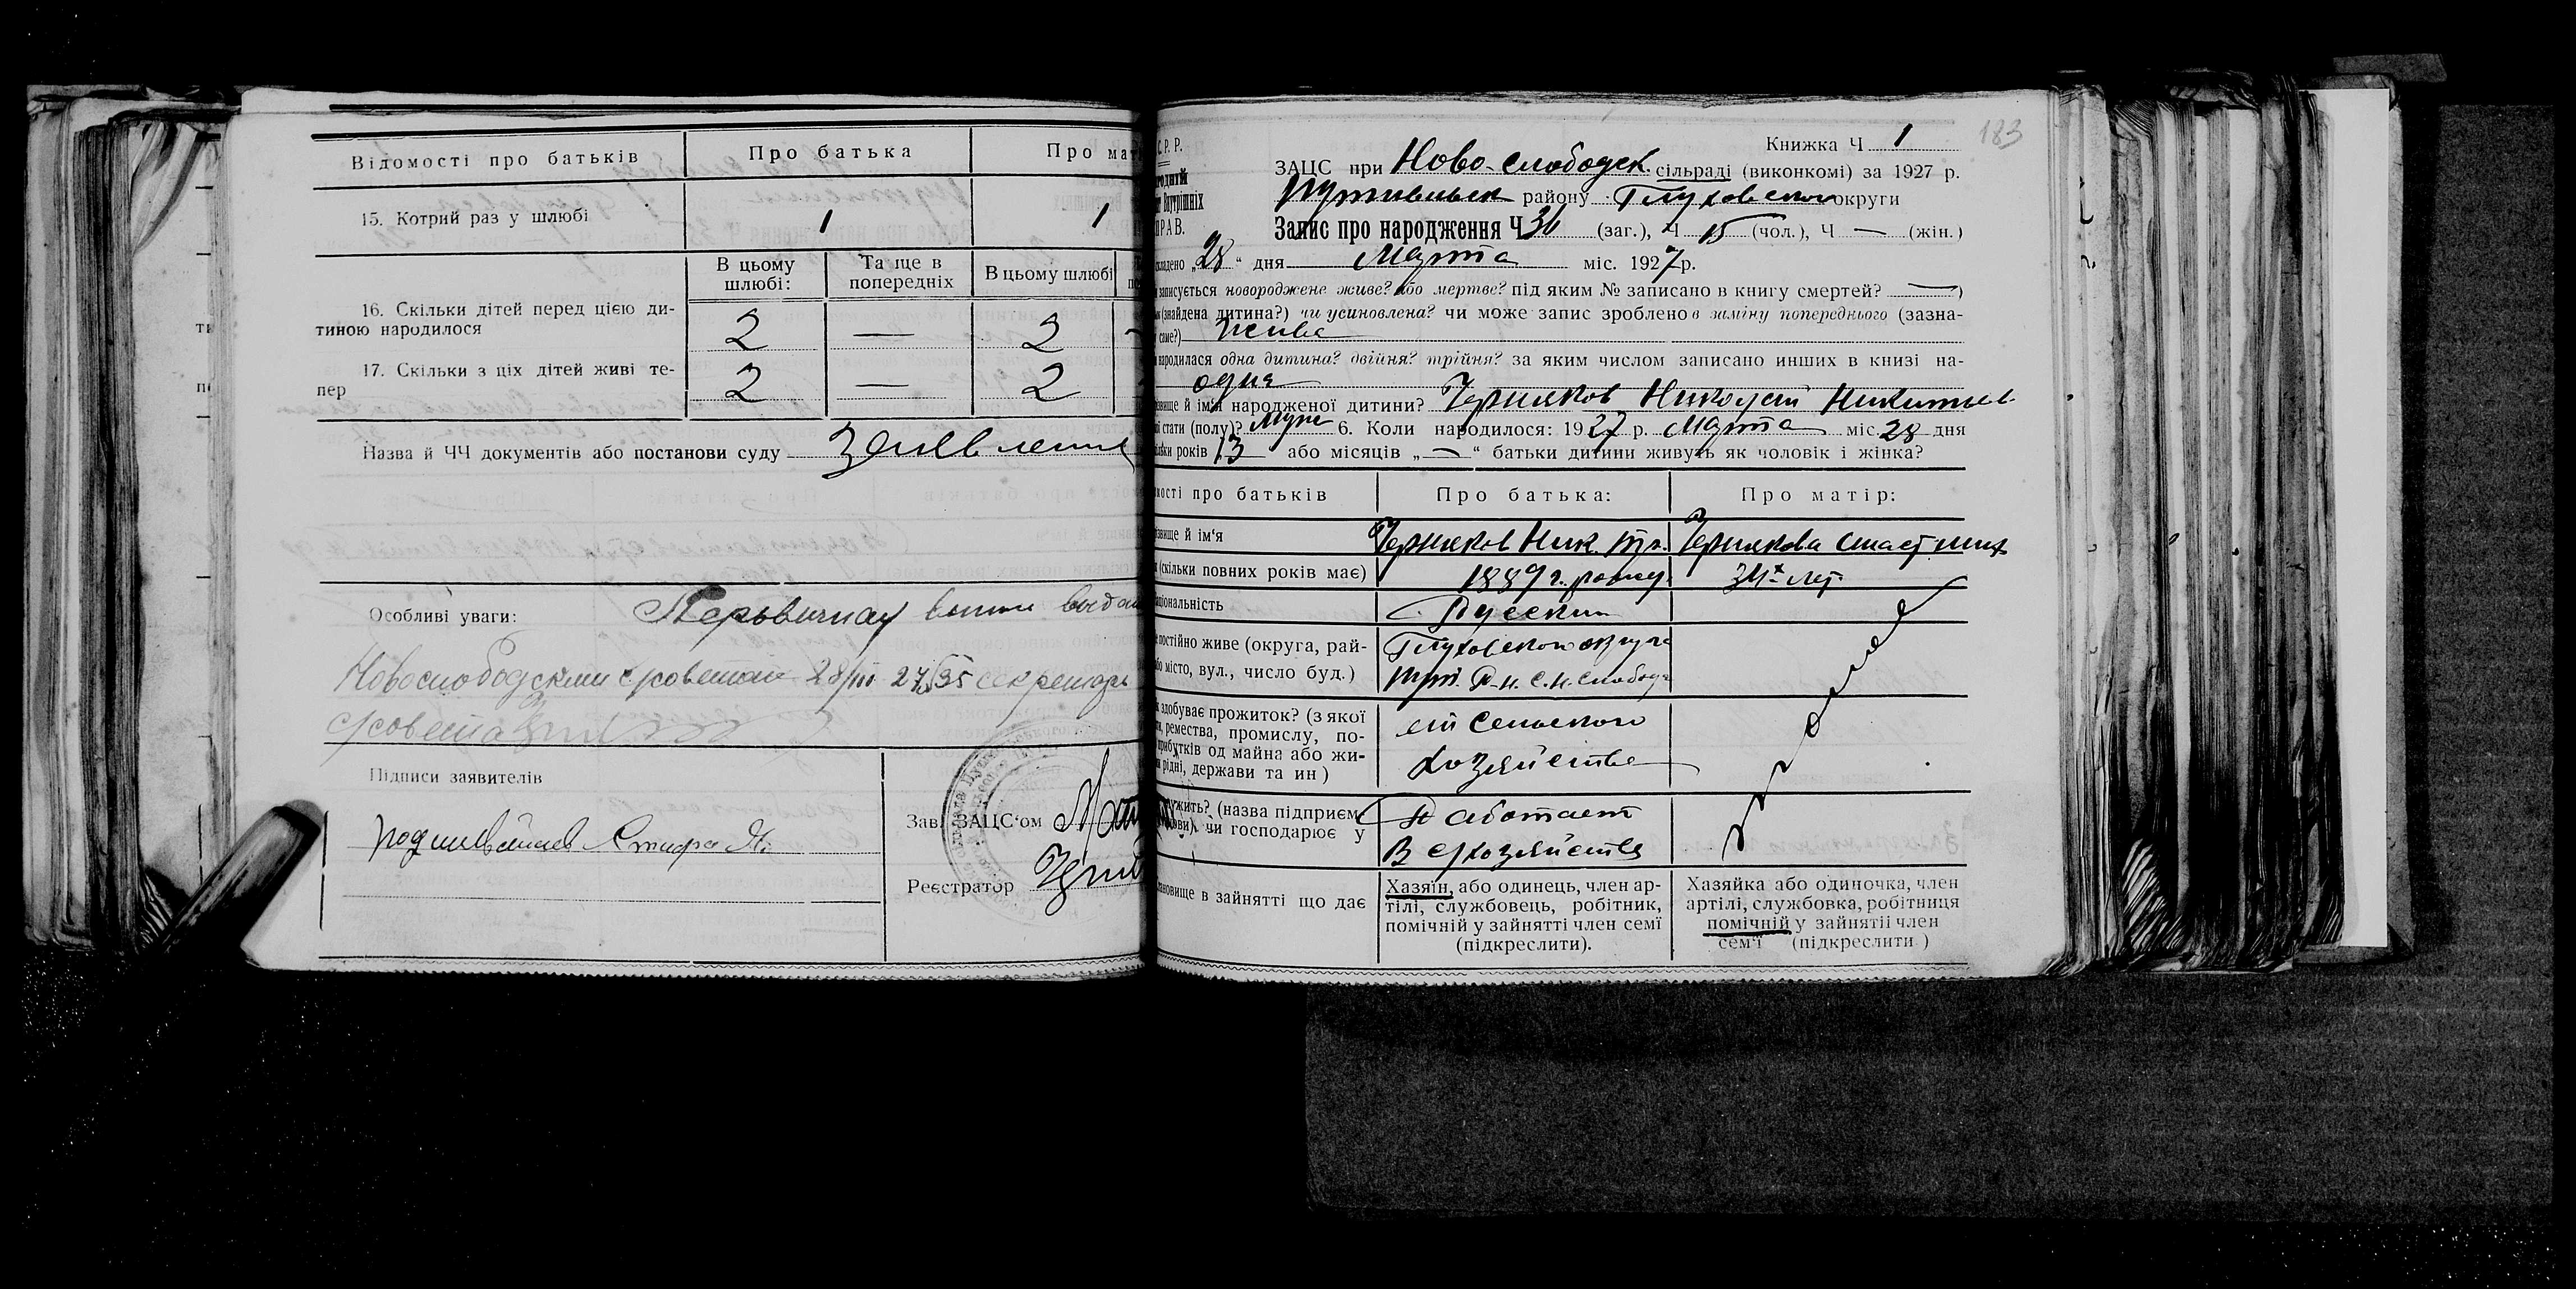 Відомості про батьків
Про батька
Про мат
15. Котрий раз у шлюбі
1
1
В цьому шлюбі:
Та ще в попередніх
В цьому шлюбі
16. Скільки дітей перед цією ди-
тиною народилося
2 — 2
17. Скільки з ціх дітей живі те-
пер
2 — 2
Назва й ЧЧ документів або постанови суду
Особливі уваги:
28/III 27 секретарь
Підписи заявителів
Зав. ЗАЦС'ом
Реєстратор
183
С.Р.Р.
Книжка Ч 1
ЗАЦС при Ново-слободск. сільраді (виконкомі) за 1927 р.
Путивльск району Глуховской округи
Запис про народження Ч 31 (заг.), Ч 15 (чол.), Ч — (жін.)
складено „28“ дня Марта міс. 1927 р.
записується новороджене живе? або мертве? під яким № записано в книгу смертей? —)
(знайдена дитина?) чи усиновлена? чи може запис зроблено в заміну попереднього (зазна-
саме?) живе
народилася одна дитина? двійня? трійня? за яким числом записано инших в книзі на-
одна
й ім'я народженої дитини? Черняков Николай Никитьев
стати (полу)? Муж 6. Коли народилося: 1927 р. Марта міс. 28 дня
років 13 або місяців „—“ батьки дитини живуть як чоловік і жінка?
про батьків
Про батька:
Про матір:
й ім'я
Черняков Ник.
Чернякова
(скільки повних років має)
1889 г.
34х лет
Русский
постійно живе (округа, рай-
місто, вул., число буд.)
Глуховской округа
Пут. Р-н. с. Н. Слобода
здобуває прожиток? (з якої
ремества, промислу, по-
прибутків од майна або жи-
рідні, держави та ин)
сельского
хозяйства
(назва підприєм
чи господарює у
Работает
в с/хозяйстве
в зайнятті що дає
Хазяїн, або одинець, член ар-
тілі, службовець, робітник,
помічній у зайнятті член семї
(підкреслити).
Хазяйка або одиночка, член
артілі, службовка, робітниця
помічній у зайнятії член
сем'ї (підкреслити)